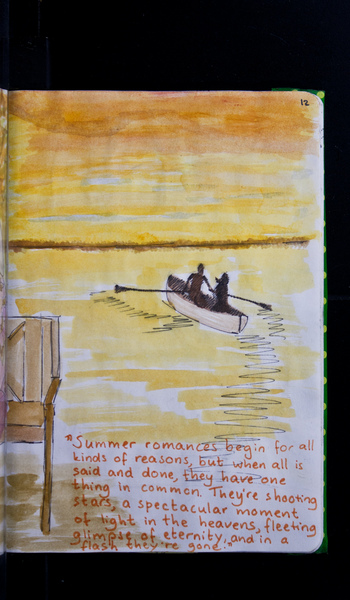 12
"Summer romances begin for all
kinds of reasons, but when all is
said and done, they have one
thing in common. They're shooting
stars, a spectacular moment
of light in the heavens, fleeting
glimpse of eternity, and in a
flash they're gone."